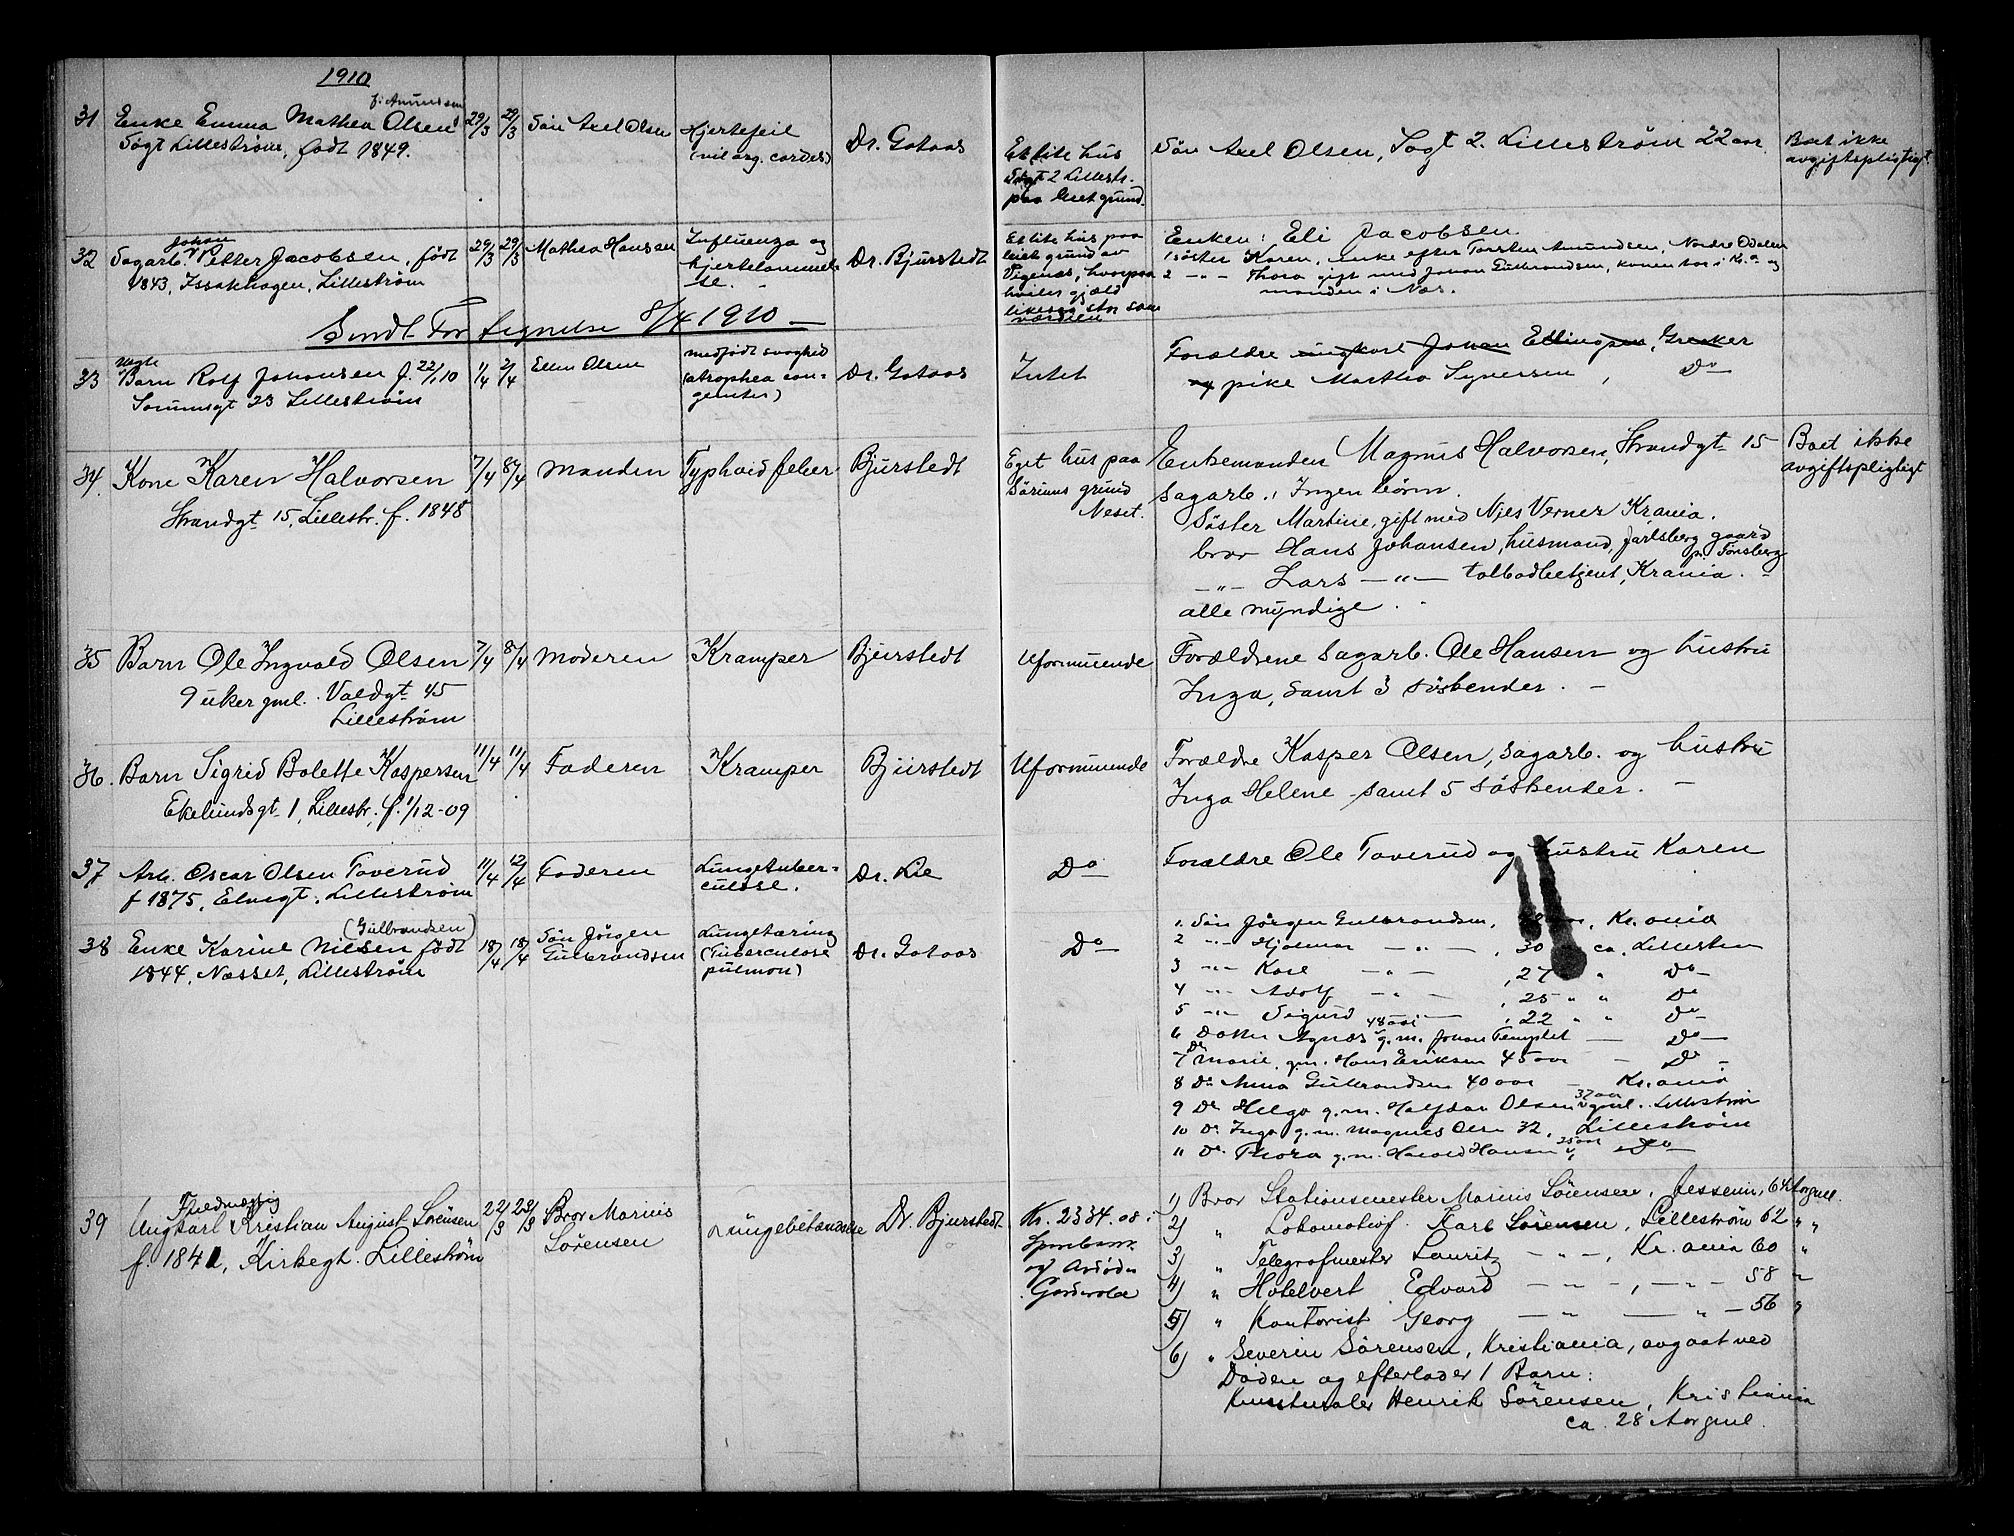 1910
31 Enke Emma Mathea Olsen f. Amundsen 29/3 29/3 Søn Axel Olsen Hjertefeil Dr. Gotaas
Sagt Lillestrøm, født 1849. (vit. org. cordis)
Et lite hus
Sagt 2 Lillestr.
paa leiet grund.
Søn Axel Olsen, Sagt 2. Lillestrøm 22 aar
Boet ikke
avgiftspligtigt.
32 Sagarb. Johan Petter Jacobsen, født 29/3 29/3 Mathea Hansen Influenza og Dr. Bjurstedt
1843, Issakhagen, Lillestrøm hjertelammel-
se.
Et lite hus paa
leiet grund av
Vigenæs, hvorpaa
hviler gjæld
likesaa stor som
værdien
Enken: Eli Jacobsen
1 søster Karen, enke efter Torsten Amundsen, Nordre Odalen
2 -"- Thora gift med Johan Gulbrandsen, konen bor i Kr.a og
manden i Næs.
Sendt Fortegnelse 8/4 1910 —
33 uegte Barn Rolf Johansen f. 22/1 10 1/4 2/4 Ellen Olsen medfødt svaghed Dr. Gotaas Intet
Sørumsgt 23 Lillestrøm (atrophea con-
genita)
Forældre ungkarl Johan Ellingsen, Grenker
og pike Martha Syversen, Do
34. Kone Karen Halvorsen 7/4 8/4 Manden Typhoid feber Bjurstedt
Strandgt 15, Lillestr. f. 1848
Eget hus paa
Sørums grund
Neset.
Enkemanden Magnus Halvorsen, Strandgt 15
Sagarb., Ingen børn.
Søster Martine, gift med Njes Verner Krania.
bror Hans Johansen, husmand, Jarlsberg gaard
p. Tønsberg
-"- Lars -"- tolbodbetjent, Krania.
alle myndige.
Boet ikke
avgiftspligtigt
35 Barn Ole Ingvald Olsen 7/4 8/4 Moderen Kramper Bjurstedt Uformuende
9 uker gml. Voldgt 45
Lillestrøm
Forældrene Sagarb. Ole Hansen og hustru
Inga, samt 3 søskender. —
36. Barn Sigrid Bolette Kaspersen 11/4 11/4 Faderen Kramper Bjurstedt Uformuende
Ekelundsgt 1, Lillestr. f. 1/12-09
Forældre Kasper Olsen, sagarb. og hustru
Inga Helene samt 5 søskender. —
37 Arb. Oscar Olsen Toverud 11/4 12/4 Faderen Lungetuber- Dr. Lie Do
f 1875, Elvegt. Lillestrøm culose.
Forældre Ole Toverud og hustru Karen
38 Enke Karine Nilsen (Gulbrandsen) født 18/4 18/4 Søn Jørgen Lungetæring Dr. Gotaas Do
1844, Næsset, Lillestrøm Gulbrandsen (Tuberculose
pulmon)
1. Søn Jørgen Gulbrandsen, Kr.ania
2 -"- Hjalmar -"-, 30 ca. Lillestrøm
3 -"- Karl -"-, 27 " Do
4 -"- Adolf -"-, 25 " " Do
5 -"- Sigurd -"-, 22 " " Do
6 Datter Agnes 48 aar g.m. Johan Templet — Do
7 Do Marie, g.m. Hans Eriksen 45 aar — Do
8 Do Anna Gulbrandsen 40 aar — Kr.ania
9 Do Helga g.m. Halfdan Olsen 37 aar gml. Lillestrøm
10 Do Inga g.m. Magnus Olsen 32, Lillestrøm
11 Do Thora g.m. Harald Hansen 25 aar, Do
39 Fhv. Ungkarl Kristian August Sørensen 22/3 22/3 Bror Marius Lungebetændelse Dr. Bjurstedt
f. 1841, Kirkegt. Lillestrøm Sørensen
Kr. 2334.08 i
Sparebank
og Avdødes
Garderobe
1) Bror Stationsmester Marius Sørensen, Jessheim, 64 Aar gml.
2) " Lokomotivf. Karl Sørensen, Lillestrøm 62 " "
3) " Telegrafmester Lauritz -"-, Kr.ania 60 "
4) " Hotelvert Edvard -"-, -"- 58 "
5) " Kontorist Georg -"- -"- 56 "
6) " Severin Sørensen, Kristiania, avgaat ved
Døden og efterlader 1 Barn:
Kunstmaler Henrik Sørensen, Kristiania
ca. 28 Aar gml.